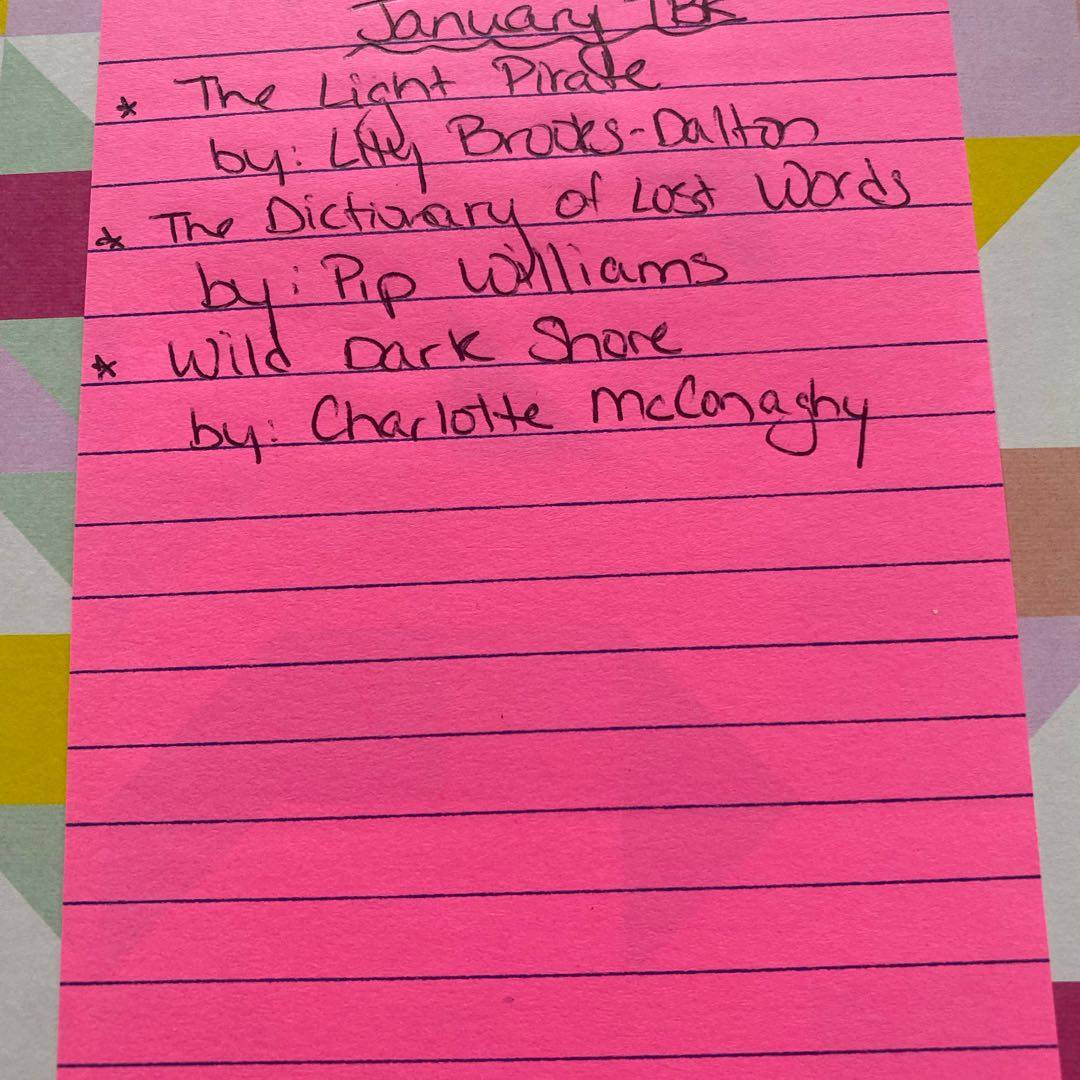 January TBR
* The Light Pirate
by: Lily Brooks-Dalton
* The Dictionary of Lost Words
by: Pip Williams
* Wild Dark Shore
by: Charlotte McConaghy